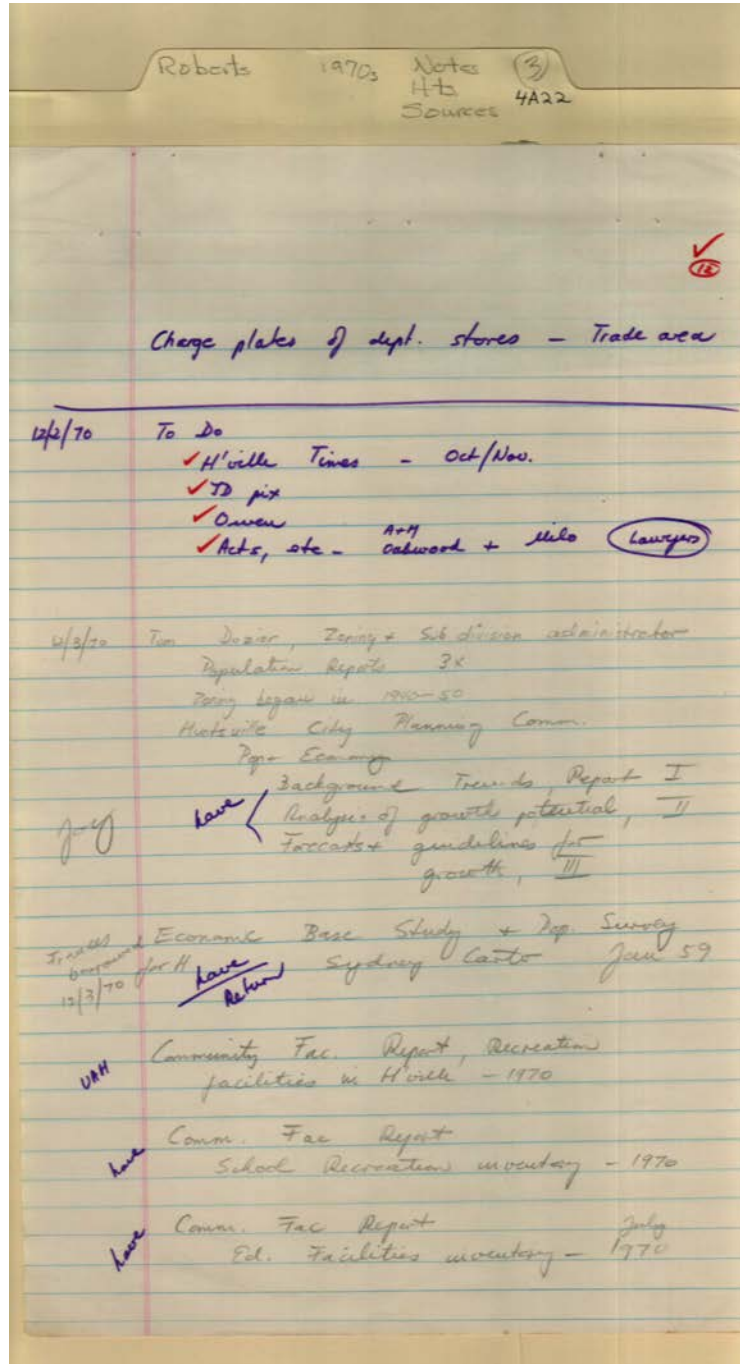 Roberts 1970s Notes ③
Hts 4A22
Sources
✓
12
Charge plates of dept. stores – Trade area
12/2/70 To Do
✓ H'ville Times – Oct/Nov.
✓ TD pix
✓ Owen
✓ Acts, etc – A+M Oakwood + Milo Lawyers
12/3/70 Tom Dozier, Zoning + Subdivision administrator
Population Reports 3x
Zoning began in
Huntsville City Planning Comm.
Pop + Economy
have Background Trends, Report I
Analysis of growth potential, II
Forecasts + guidelines for
growth, III
borrowed Economic Base Study + Pop. Survey
12/3/70 for H have Sydney Carto Jan 59
Return
UAH Community Fac. Report, Recreation
facilities in H'ville – 1970
have Comm. Fac Report
School Recreation inventory – 1970
have Comm. Fac Report July
Ed. Facilities inventory – 1970